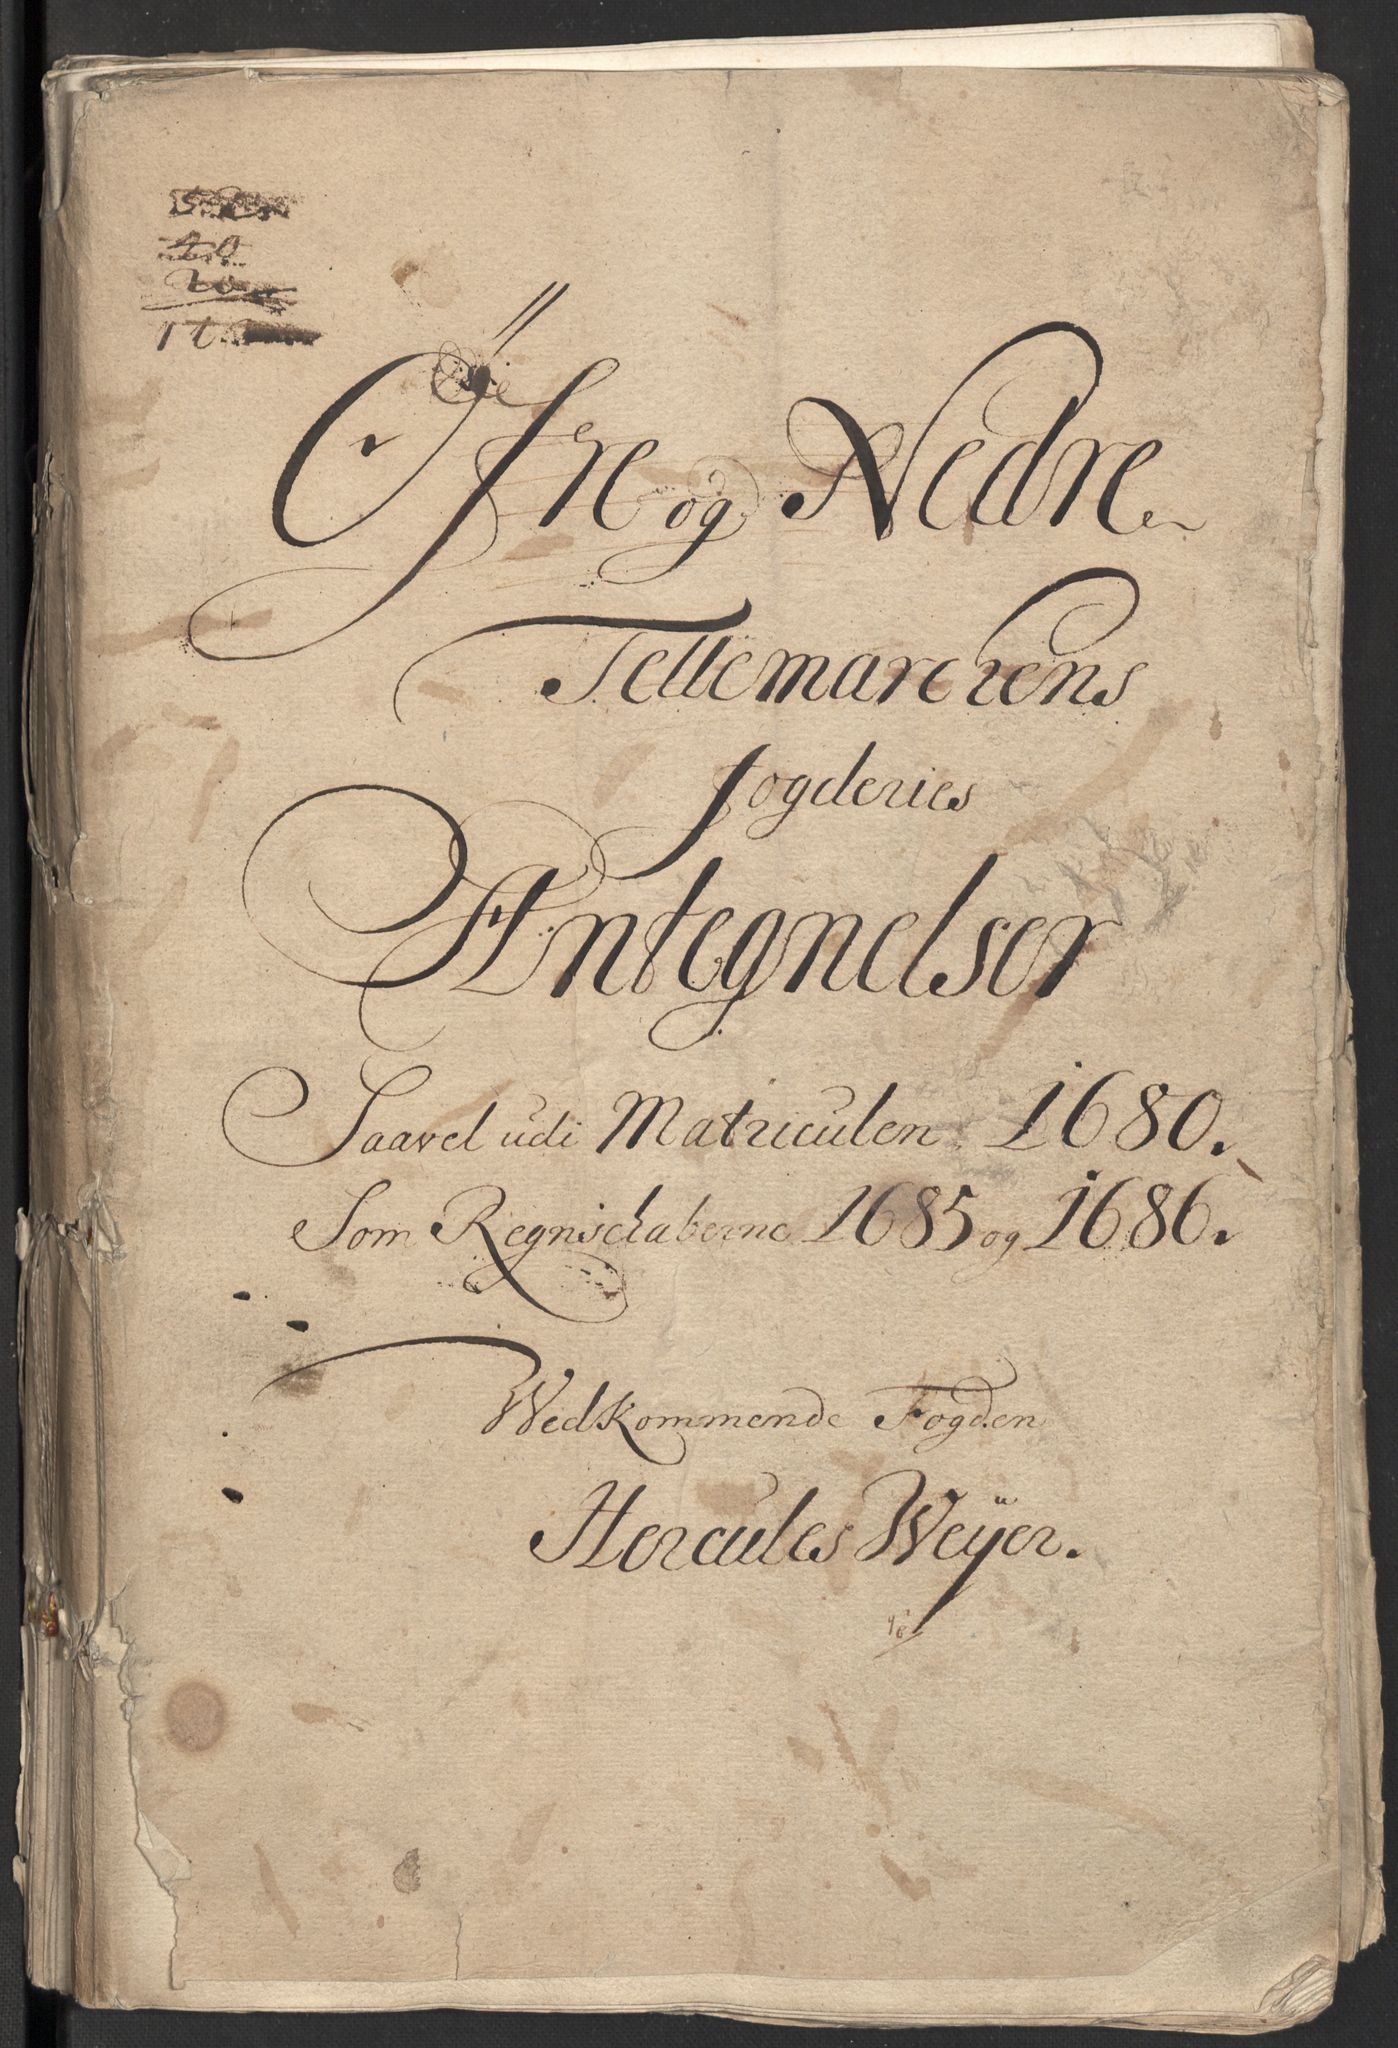 Øfre og Nedre
Tellemarchens
Fogderies
Antegnelser
Saavel udi Matriculen 1680.
Som Regnschaberne 1685 og 1686.
Wedkommende Fogden
Hercules Weÿer.